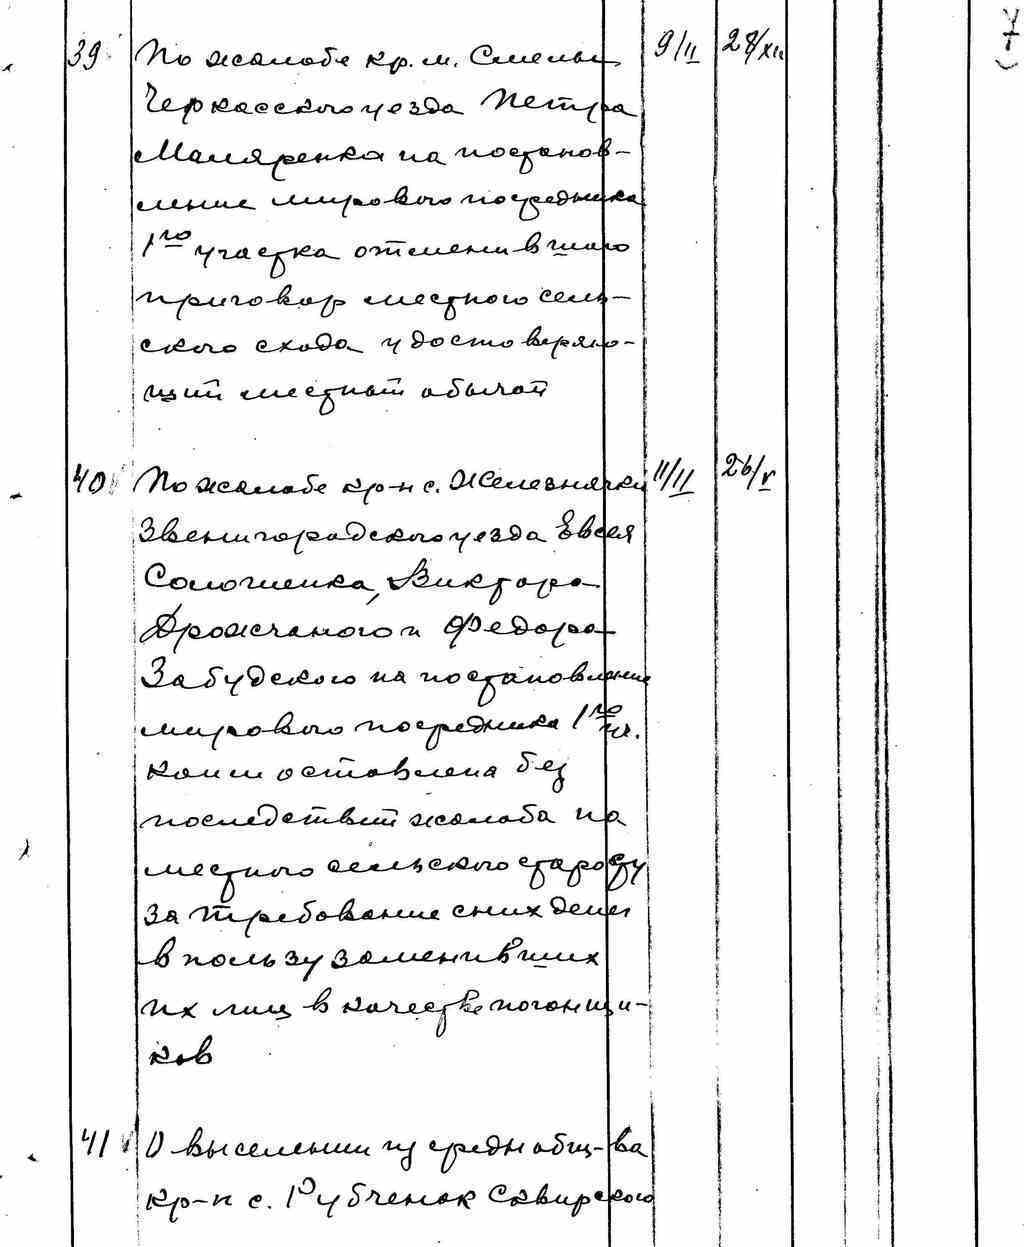 39 По жалобе кр. м. Смелы 9/II 28/XII
Черкасского уезда Петра
Маляренка на постанов-
ление мирового посредника
1го участка отменившаго
приговор местного сель-
ского схода удостоверяю-
щий местный обычай
40 По жалобе кр-н с. Железнячки 11/II 26/V
Звенигородского уезда Евсея
Сологиенка, Виктора
Дрожчаного и Федора
Забудского на постановление
мирового посредника 1го уч.
коим оставлена без
последствий жалоба на
местного сельского старосту
за требование с них денег
в пользу заменивших
их лиц в качестве погонщи-
ков
41 О выселении из среды общ-ва
кр-н с. Рубченок Сквирского